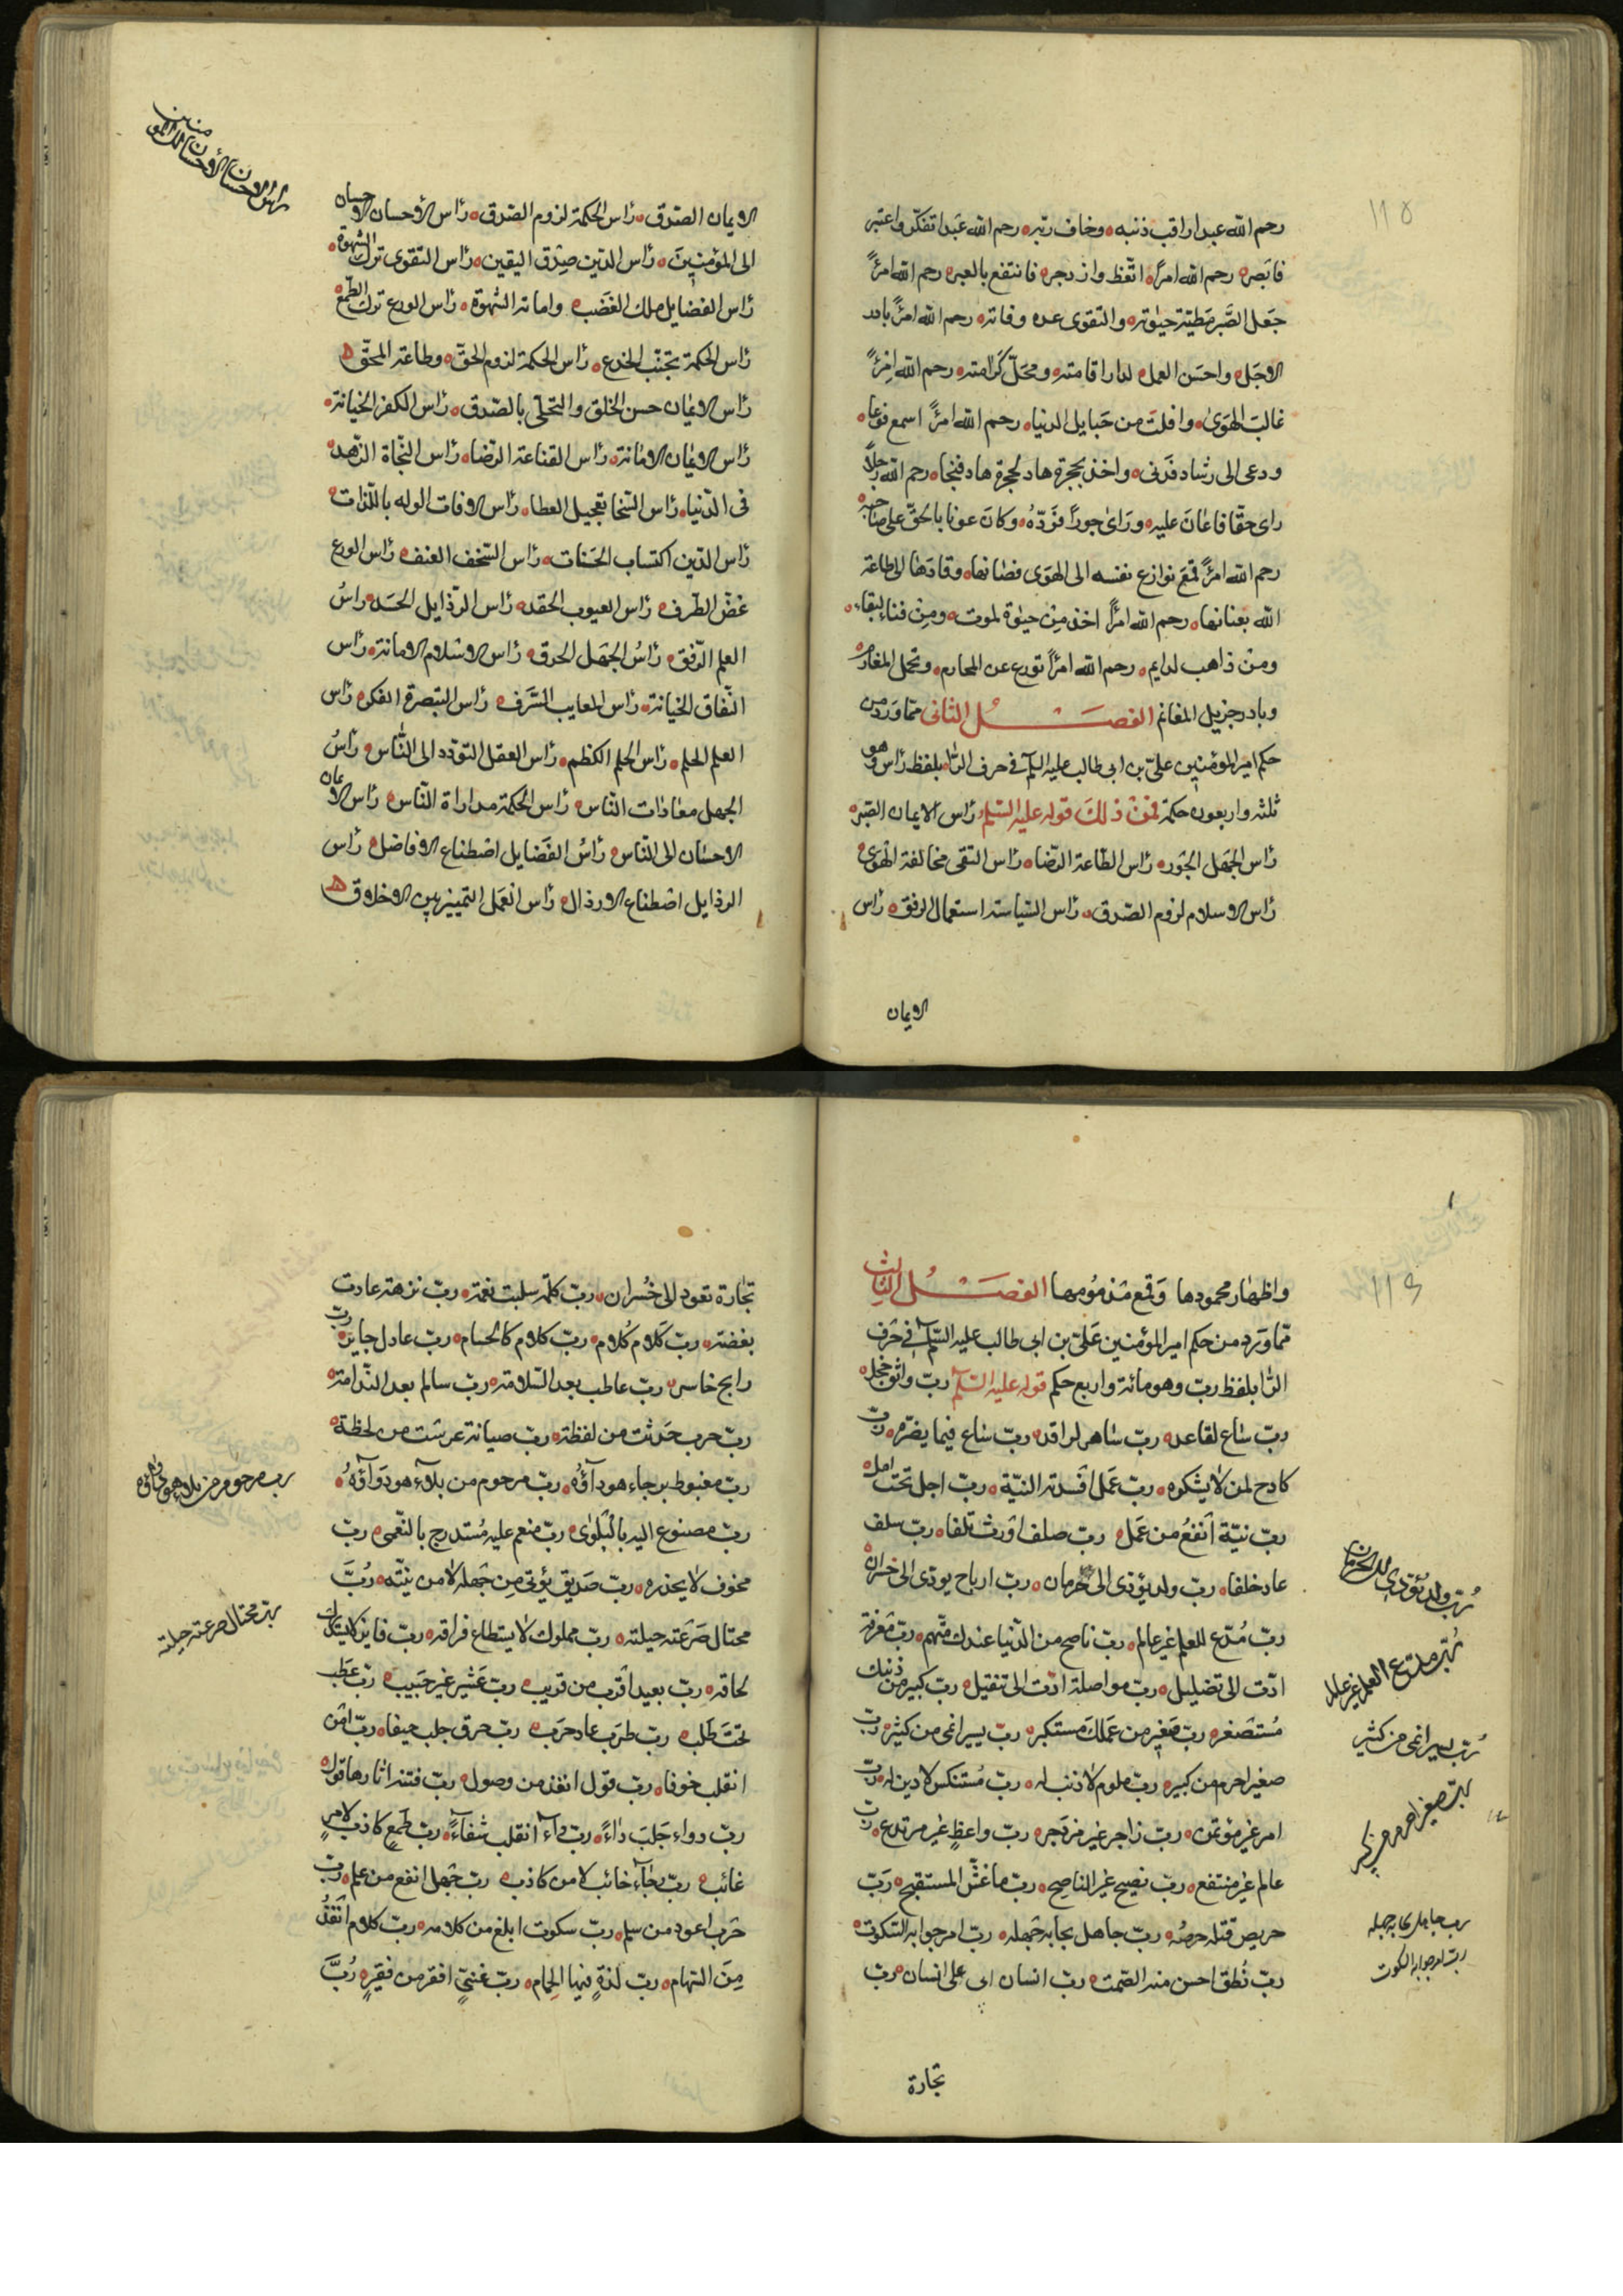 ١١٥
رحم الله عبدا راقب ذنبه وخاف ربه رحم الله عبدا تفكّر واعتبر
فابصر رحم الله امرأً اتّعظ وازدجر فانتفع بالعبر رحم الله امرأً
جَعَل الصَّبر مَطيّة حيوته والتقوى عده وفاته رحم الله امرأً بادر
الاجَل واحسَن العمل لدار اقامته ومَحلّ كَرامته رحم الله امْرأً
غالبَ الهَوىٰ وافلتَ من حَبايل الدنيا رحم الله امرَأً اسمع فوَعا
ودعى الى رشاد فدَنى واخذ بحجزة هاد فنجا رحم الله رجلاً
راى حقّا فاعَانَ عليه ورَاىٰ جوراً فرَدّهُ وكانَ عونا بالحقّ على صَاحبه
رحم الله امرأً قمَعَ نوازع نفسه الى الهوَى فصانها وقادَهَا الى طاعة
الله بعنانها رحم الله امرأً اخذ مِنْ حيوٰة لموت ومِنْ فناء لبقاء
ومنْ ذاهب لدايم رحم الله امرأً تورع عن المحارم وتحمل المغارم
وبادر جزيل المغانم الفصَــــْــل الثانى ممّا وَرَدَ من
حكم امير المؤمنين علىّ بن ابى طالب عليه السلم فى حرف الرّا بلفظ رَأس وهو
ثلثه واربعون حكمة فمنْ ذٰلكَ قوله عليه السّلم رَاس الايمان الصّبر
رَاس الجَهَل الجَور رَاس الطّاعة الرّضا رَاس التقى مخالفة الهَوىٰ
رَاس الاسلام لزوم الصّدق رَاس السّياسة استعمال الرفق رَاس
الايمان
راس الاحسان الاحسان الى المؤمنين
الايمان الصّدق رَاس الحكمة لزوم الصّدق رَاس الاحسان الاحسان
الى المؤمنِينَ رَاس الدّين صِدْق اليقين رَاس التقوى ترك الشهوة
رَاس الفضَايل ملك الغضَب واماتة الشهوة رَاس الورع ترك الطّمع
رَاس الحكمة تجنّب الخدع رَاس الحكمة لزوم الحقّ وطاعة المحقّ
رَاس الايمَان حسن الخلق والتحلّى بالصّدق رَاس الكفر الخيانة
رَاس الايمَان الامانة رَاس القناعة الرّضا رَاس النّجاة الزّهد
فى الدّنيا رَاس السّخا تعجيل العطا رَاس الافات الوله باللّذات
رَاس الدّين اكتساب الحسَنات رَاس السّخف العنف رَاس الورع
غضّ الطّرف رَاس العيوب الحقد رَاس الرذايل الحسَد راسُ
العلم الرّفق رَاسُ الجهَل الخرق رَاس الاسْلام الامانة رَاس
النّفاق الخيانة رَاس المعايب الشَّرَف رَاس التبصرة الفكر رَاس
العلم الحلم رَاس الحلم الكظم رَاس العقل التّودّد الى النّاس رَاسُ
الجهل معادَات النّاس رَاس الحكمة مداراة النّاس رَاس الايمان
الاحسَان الى النّاس رَاسُ الفضَايل اصْطناع الافاضل رَاس
الرذايل اصْطناع الارذال رَاس العَمل التّمييز بين الاخلاق
١١٦
واظهَار محمودها وَقمع مَذمُومها الفصَــــْــل الثالث
ممّا وَرَد من حكم امير المؤمنين عَلىّ بن ابى طالب عليه السّلم فى حَرف
الرّا بلفظ ربّ وهو مائة واربع حكم قوله عليه السّلم ربّ واثق خجل
ربّ سَاع لقاعد ربّ سَاهر لراقد ربّ سَاع فيما يضرّه ربّ
كادح لمن لا يشكره ربّ عَمل افسَدته النيّة ربّ اجل تحتَ امل
ربّ نيّة انْفعُ من عَمل ربّ صلف اوَرث تلفا ربّ سلف
عاد خلفا ربّ ولد يؤدى الى حرمان ربّ ارباح يودى الى خسران
ربّ مُدّع للعلم غير عالم ربّ ناصح من الدّنيا عندك متّهم ربّ معرفة
ادّت الى تضليل ربّ مواصلة ادّت الى تثقيل ربّ كبير من ذنبك
مُستصَغر ربّ صَغير من عمَلكَ مستكبر ربّ يسير انمى من كثير ربّ
صغير احرم من كبير ربّ ملوم لا ذنب له ربّ مُتنسّك لا دين له ربّ
امر غير مؤتمر ربّ زاجر غير مزدَجر ربّ واعظٍ غير مرتدع ربّ
عالم غير منتفع ربّ نصيح غير الناصح ربّ ما غشّ المستنصح رَبّ
حريص قتله حرصُه ربّ جاهل نجا به جَهله ربّ امر جوابه السّكوت
ربّ نُطق احسن منه الصّمت ربّ انسان ابى على انسان ربّ
تجارة
رُبّ ولد يؤدى الى الحرمان
رُبّ مدع للعلم غير عالم
رُبّ يسير انمى من كثير
ربّ صغير احرم من كبير
رب جاهل نجا به جهله
ربّ امر جوابه السكوت
تجَارة تعود الى خُسران ربّ كلمَة سلبت نعمَة ربّ نزهة عادت
بغضة ربّ كَلَام كُلَام ربّ كلَام كالحسام ربّ عادل جاير ربّ
رابح خاسر ربّ عاطب بعد السّلامة ربّ سالم بعد النّدامة
ربّ حرب حَدثت من لفظة ربّ صيانة غرسَت من لحظة
ربّ مغبوط برجاء هو داؤه ربّ مرحوم من بلاء هو دَواؤه
ربّ مصنوع اليه بالبَلوٰى ربّ منعم عليه مُستدرج بالنّعمى ربّ
مخوف لا يحذره ربّ صَديق يؤتى مِن جَهله لا من نيّته رُبَّ
محتال صَرعَته حيلته ربّ مملوك لا يستطاع فراقه ربّ فاين لا يستدرك
لحاقه ربّ بعيد اقرب من قريب ربّ عَشير غير حَبيب ربّ عَطب
تحتَ طَلب ربّ طرَب عاد حرَب ربّ حرق جلب حيفا ربّ امْن
انقلب خوفا ربّ قول انفذ من وصول ربّ فتنة اثارها قول
ربّ دواء جَلبَ دَاءً ربّ داء انقلب شفاءً ربّ طَمعٍ كاذب لامرٍ
غائب ربّ رجَاء خائب لا من كاذب ربّ جَهل انفع من علم ربّ
حَرب اعود من سلم ربّ سكوت ابلغ من كلامه ربّ كلام انْفَذُ
مِنَ السّهام ربّ لَذةٍ فيها الحِمام ربّ غَنىّ افقر من فقيرٍ رُبَّ
رب مرحوم من بلاء هو دواؤه
ربّ محتال صرعته حيلته